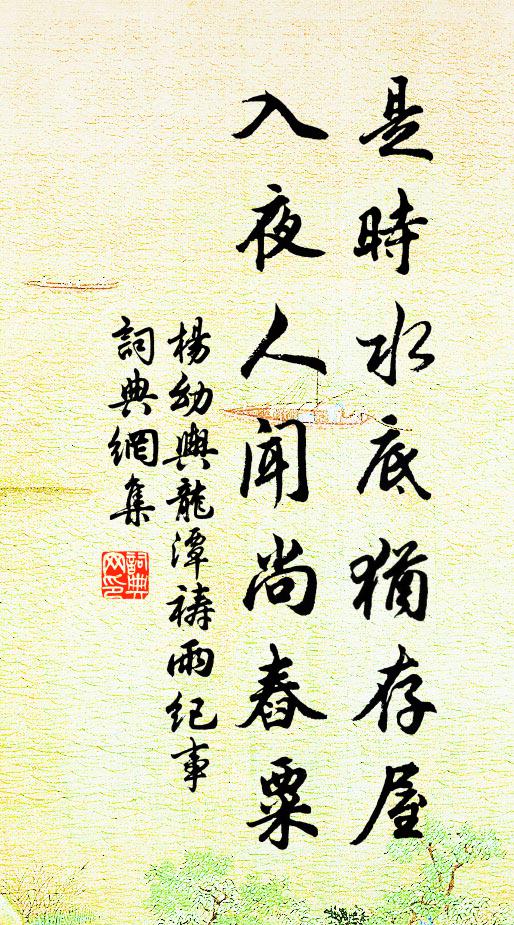 是時水底猶存屋
入夜人聞尚舂粟
楊幼輿龍潭禱雨紀事
詞典網集
詞典网印